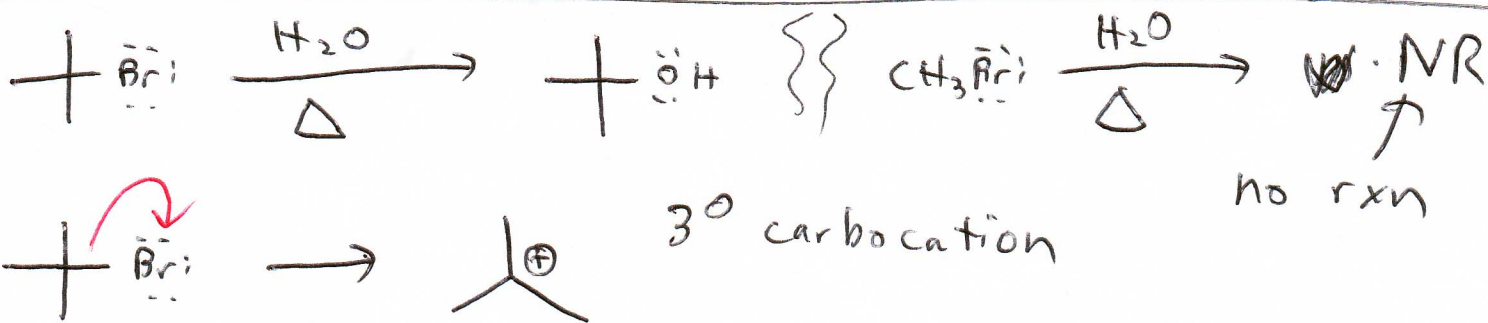 Br H₂O Δ OH CH₃Br H₂O Δ NR
no rxn
Br ⊕ 3° carbocation